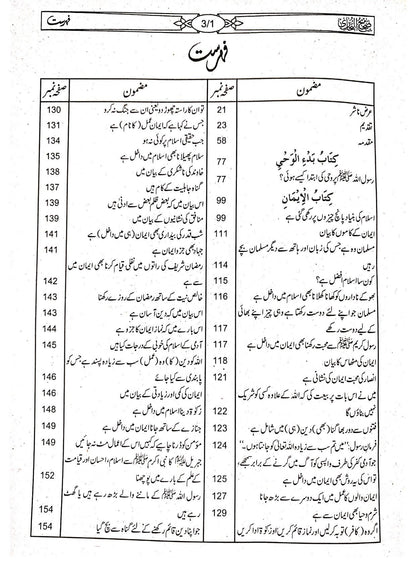 صحیح البخاری
3/1
فہرست
فہرست
مضمون صفحہ نمبر
عرض ناشر 21
تقدیم 23
مقدمہ 58
كِتَابُ بَدْءِ الْوَحْيِ 77
رسول اللہ ﷺ پر وحی کی ابتدا کیسے ہوئی؟ 77
كِتَابُ الْإِيْمَانِ 99
اسلام کی بنیاد پانچ چیزوں پر رکھی گئی ہے 99
ایمان کے کاموں کا بیان 111
مسلمان وہ ہے جس کی زبان اور ہاتھ سے دیگر مسلمان بچے
رہیں 114
کون سا اسلام افضل ہے؟ 115
بھوکے ناداروں کو کھانا کھلانا بھی اسلام میں داخل ہے 116
مسلمان جو اپنے لئے دوست رکھتا ہے وہی چیز اپنے بھائی
کے لیے دوست رکھے 117
رسول کریم ﷺ سے محبت رکھنا بھی ایمان میں داخل ہے 117
ایمان کی مٹھاس کا بیان 118
انصار کی محبت ایمان کی نشانی ہے 121
میں نے اس بات پر بیعت کی کہ اللہ کے علاوہ کسی کو شریک
نہیں بناؤں گا 122
فتنوں سے دور بھاگنا (بھی) دین (ہی) میں شامل ہے 123
فرمان رسول: ”میں تم سب سے زیادہ اللہ تعالی کو جانتا ہوں۔“ 124
جو آدمی کفر کی طرف واپسی کو آگ میں گرنے کے برابر سمجھے،
تو اس کی یہ روش بھی ایمان میں داخل ہے 125
ایمان والوں کا عمل میں ایک دوسرے سے بڑھ جانا 127
شرم و حیا بھی ایمان سے ہے 129
اگر وہ (کافر) توبہ کر لیں اور نماز قائم کریں اور زکوۃ ادا کریں
مضمون صفحہ نمبر
تو ان کا راستہ چھوڑ دو یعنی ان سے جنگ نہ کرو 130
جس نے کہا ہے کہ ایمان عمل (کا نام) ہے 131
جب حقیقی اسلام پر کوئی نہ ہو 134
سلام پھیلانا بھی اسلام میں داخل ہے 135
خاوند کی ناشکری کے بیان میں 138
گناہ جاہلیت کے کام ہیں 137
اس بیان میں کہ بعض ظلم بعض سے ادنیٰ ہیں 139
منافق کی نشانیوں کے بیان میں 140
شب قدر کی بیداری بھی ایمان (ہی میں داخل) ہے 141
جہاد بھی جزو ایمان ہے 141
رمضان شریف کی راتوں میں نفلی قیام کرنا بھی ایمان میں
سے ہے 142
خالص نیت کے ساتھ رمضان کے روزے رکھنا 143
اس بیان میں کہ دین آسان ہے 143
اس بارے میں کہ نماز ایمان کا جزو ہے 144
آدمی کے اسلام کی خوبی کے درجات کیا ہیں 145
اللہ کو دین (کا) وہ (عمل) سب سے زیادہ پسند ہے جس کو
پابندی سے کیا جائے 146
ایمان کی کمی اور زیادتی کے بیان میں 146
زکوۃ دینا اسلام میں داخل ہے 148
جنازے کے ساتھ جانا ایمان میں داخل ہے 149
مومن کو ڈرنا چاہئے کہ کہیں اس کے اعمال مٹ نہ جائیں 149
جبریل علیہ السلام کا نبی اکرم ﷺ سے اسلام، احسان اور قیامت
کے علم کے بارے میں پوچھنا 152
رسول اللہ ﷺ کے ماننے والے بڑھ رہے ہیں یا گھٹ
رہے ہیں 154
جو اپنا دین قائم رکھنے کے لئے گناہ سے بچ گیا 154